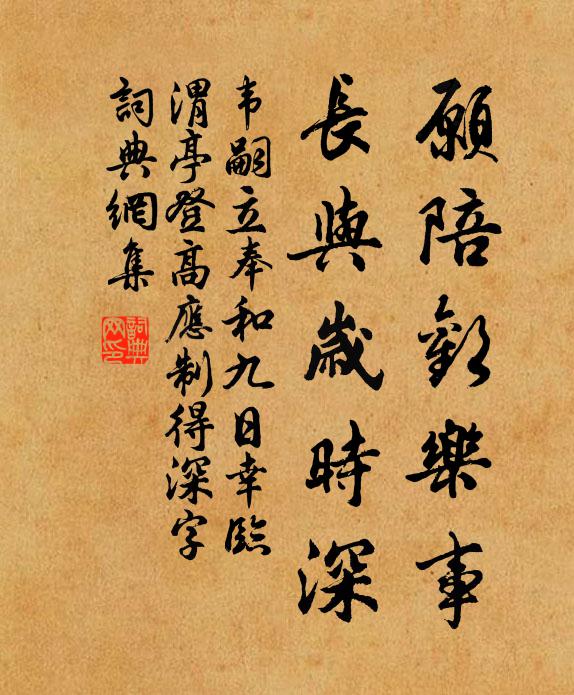 願陪歡樂事
長與歲時深
韦嗣立奉和九日幸臨
渭亭登高應制得深字
詞典網集
詞典网印